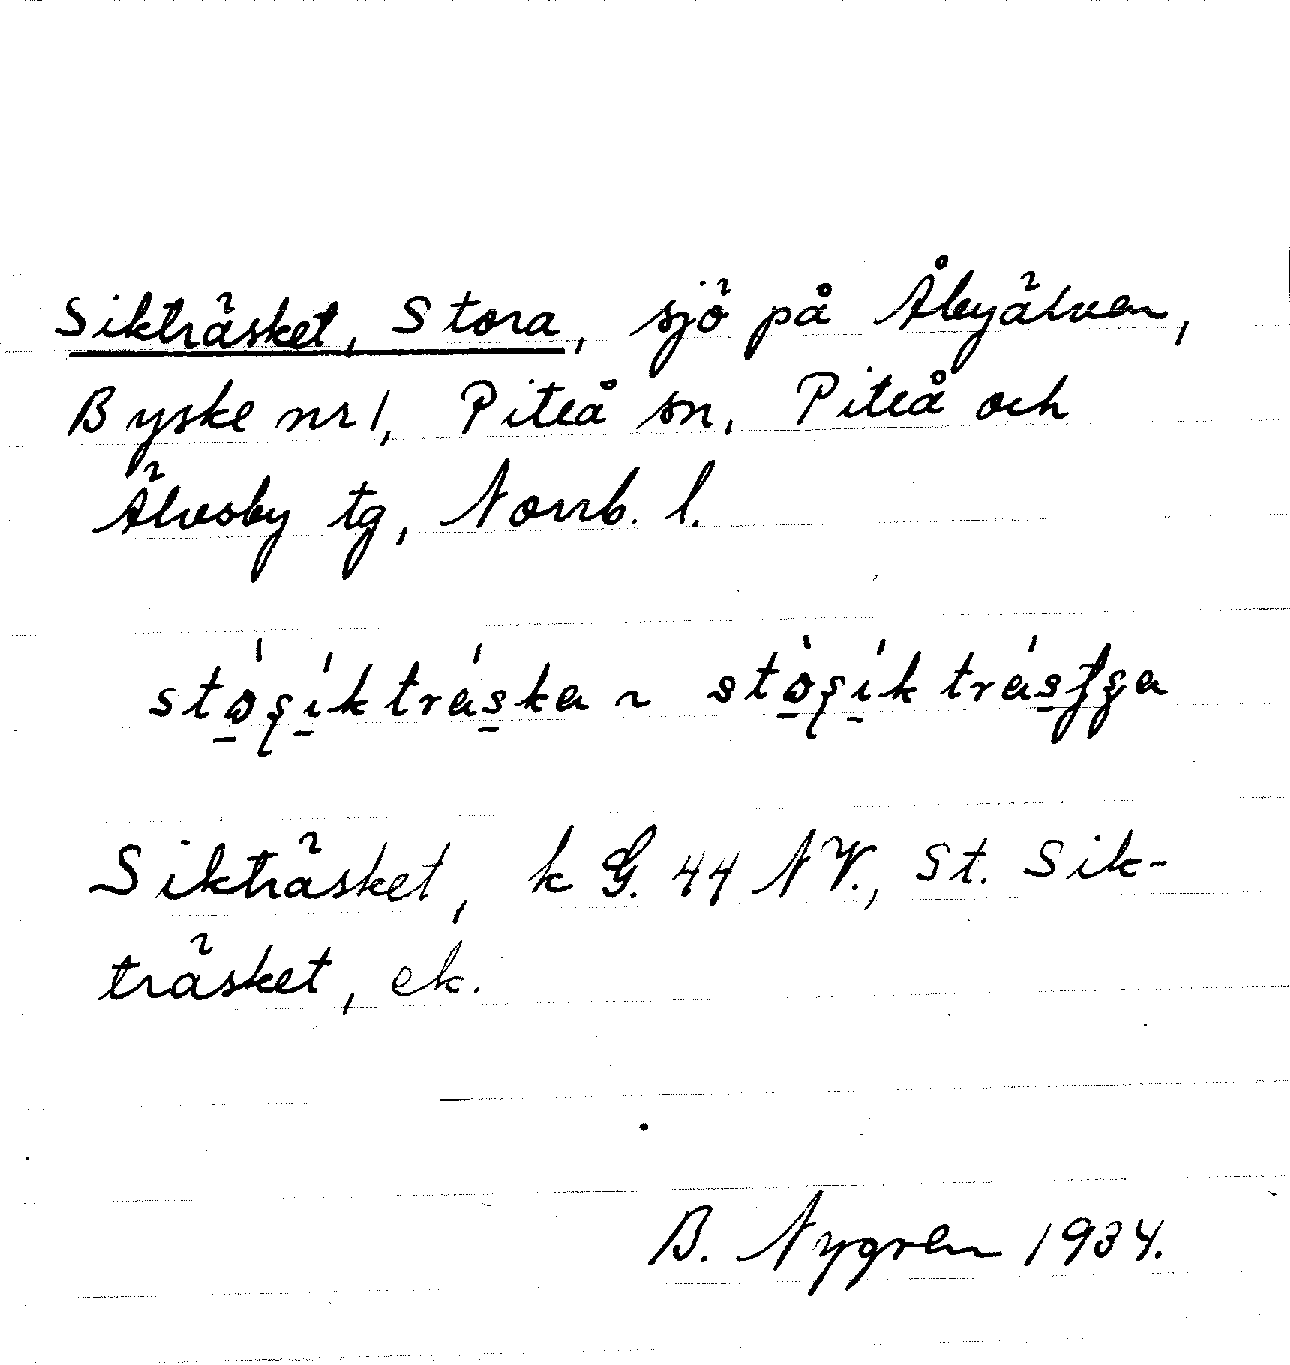 Sikträsket, Stora, sjö på Åbyälven,
Byske nr 1, Piteå sn, Piteå och
Älvsby tg, Norrb. l.
Sikträsket, k G. 44 NV., St. Sik-
träsket, ek.
B. Nygren 1934.